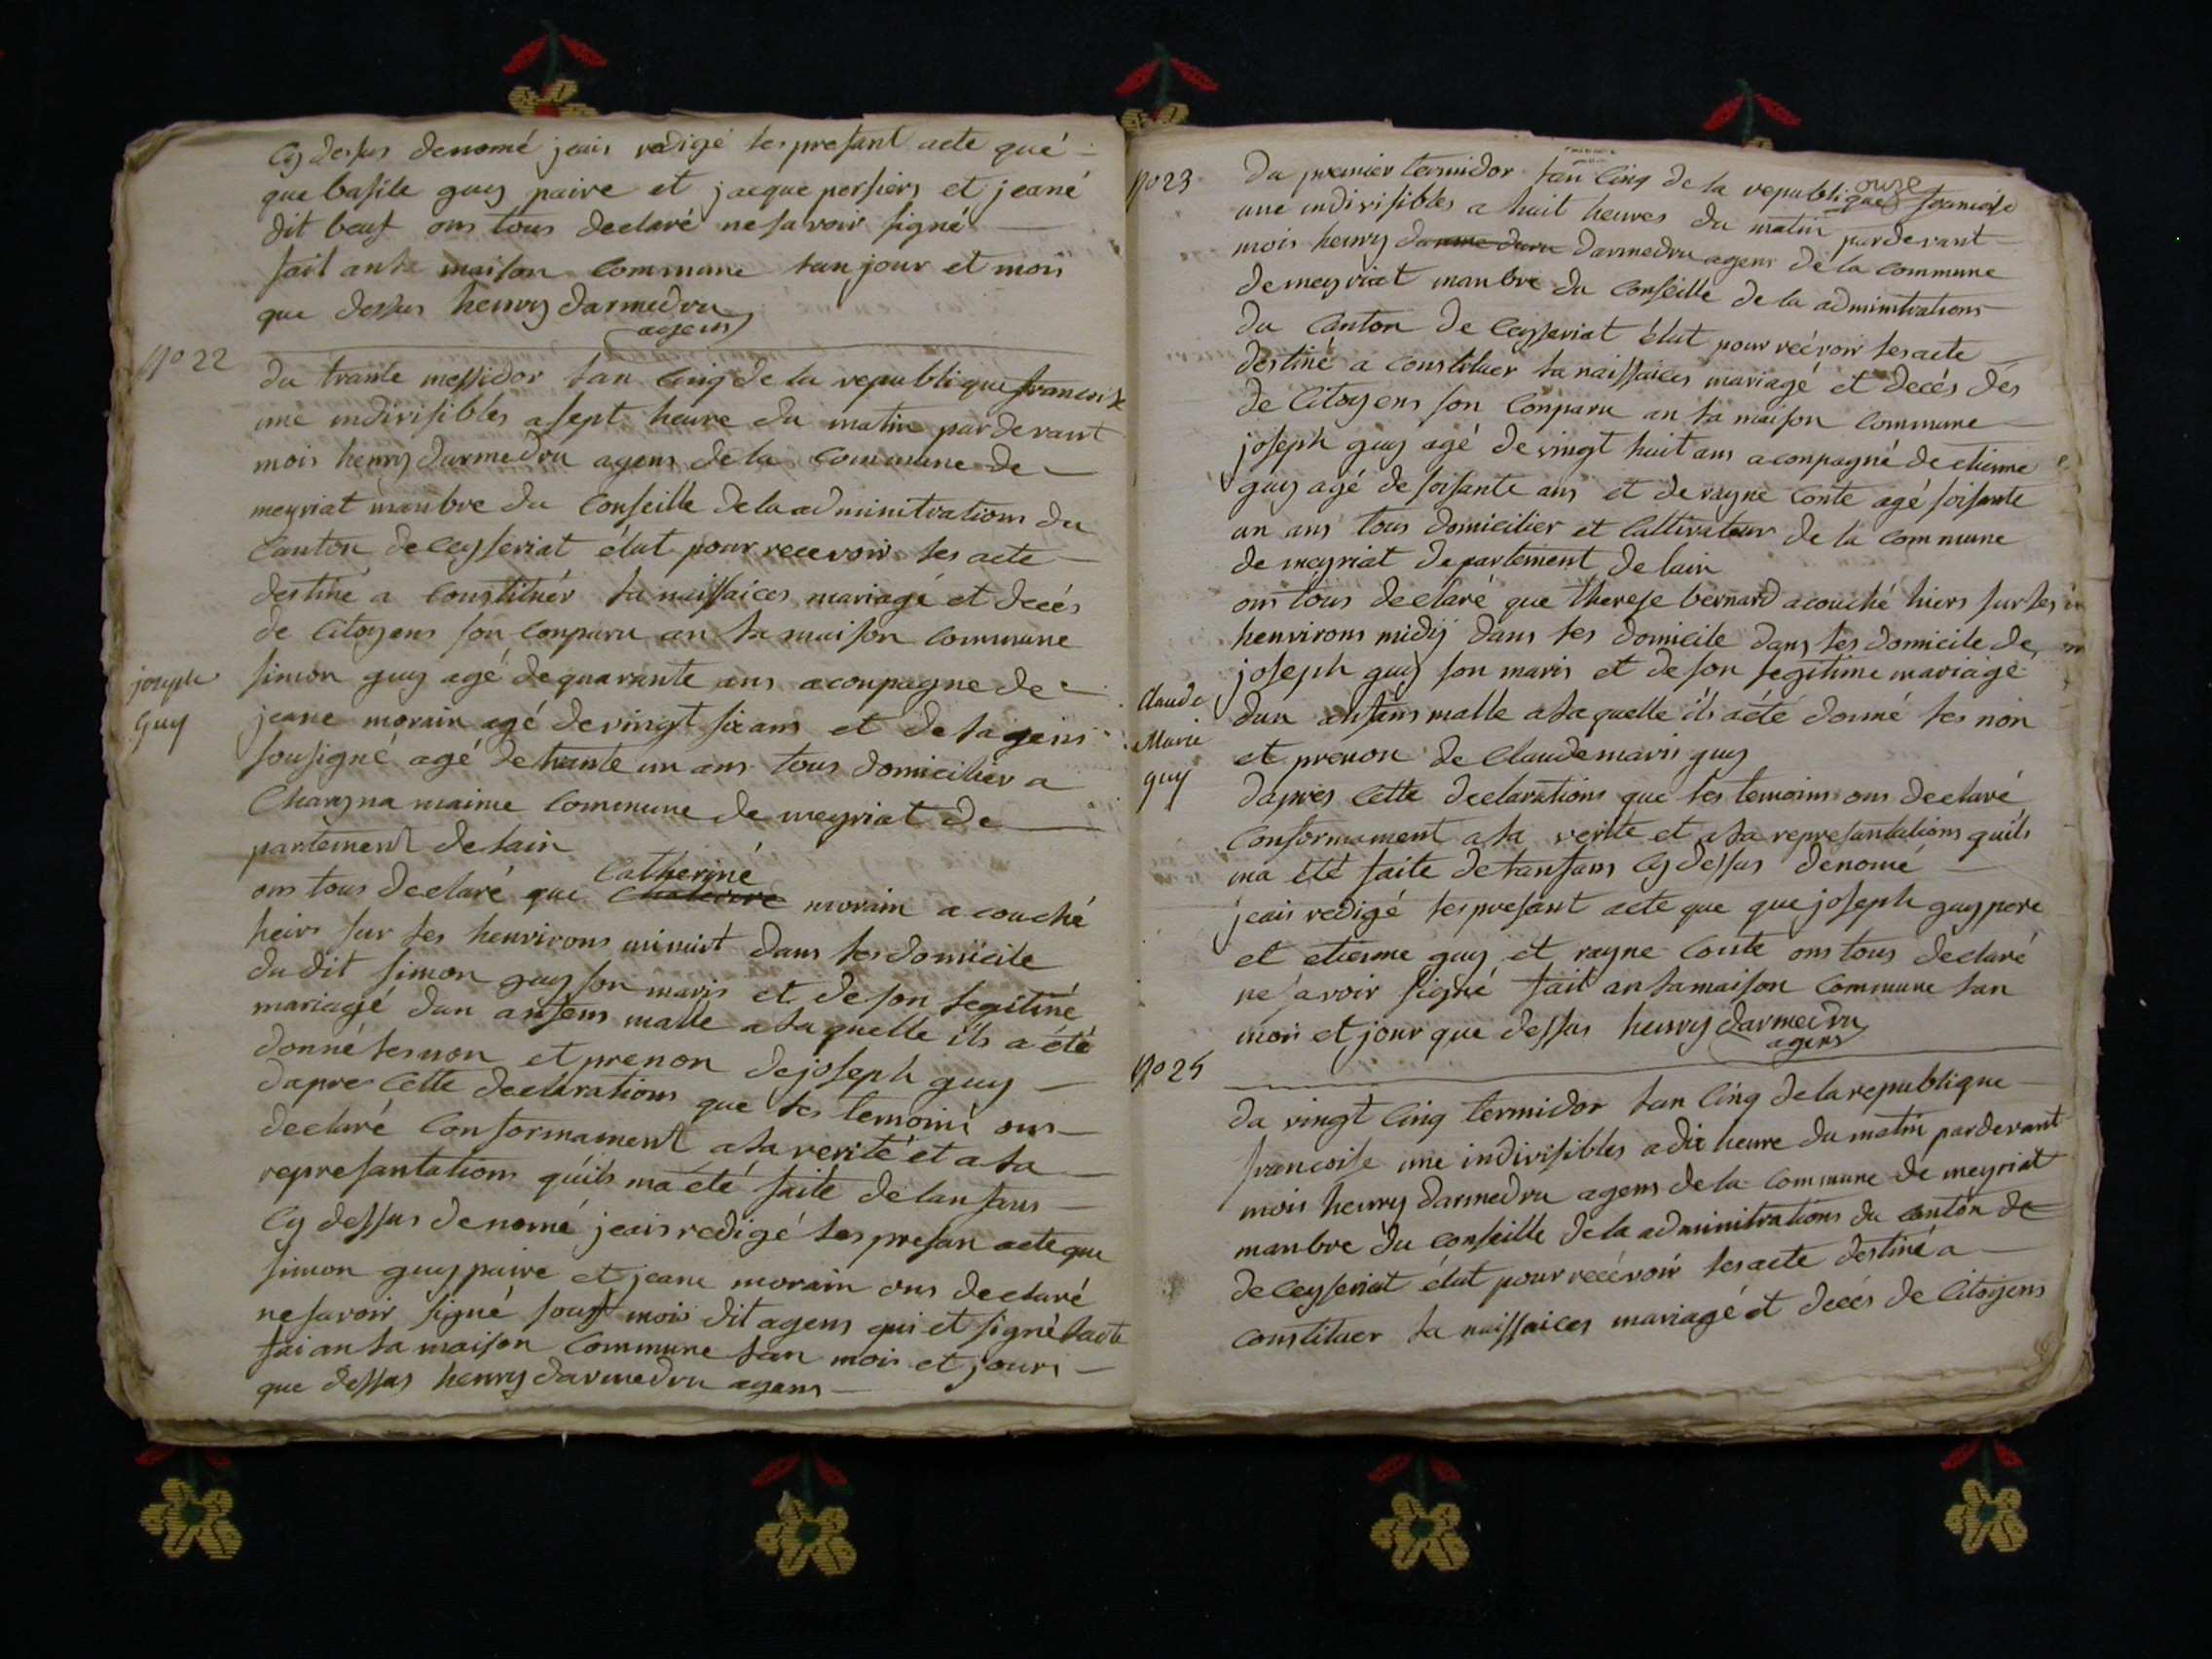 cy desus denomé jeais redigé les presant acte qué
que basile guy paire et jacque persiers et jeané
dit beuf ons tous declaré ne savoir signé
fait an la maison commune lan jour et mois
que dessus henry darmedru
agens
No 22
du trante messidor lan cinq de la republique francoise
une indivisibles a sept heure du matin par devant
mois henry darmedru agens de la commune de
meyriat manbre du conseille de la adminitrations du
canton de ceyseriat élut pour recevoir les acte
destiné a constituér la naissaices mariagé et decés
de citoyens son conparu an la maison commune
joseph
guy
simon guy agé de quarante ans aconpagne de
jeane morain agé de vingt six ans et de lagens
sousigné agé de trante un ans tous domicilier a
Charyna maime commune de meyriat de
partement de lain
Catheriné
ons tous declaré que morain a couché
heirs sur les henvirons minuit dans les domicile
du dit simon guy son maris et de son legitiné
mariagé dun ansens malle a la quelle ils a été
donné les non et prenon de joseph guy
dapre cette declarations que les temoins ons
declaré conformament a la verité et a la
represantations quils ma été faite de lansans
cy dessus denomé jeais redigé les presan acte que
simon guy paire et jeane morain ons declaré
ne savoir signé sauf mois dit agens qui et signé lacte
fai an la maison commune lan mois et jours
que dessus henry darmedru agens
No 23
du premier termidor lan cinq de la republique francoise
ouse
une indivisibles a huit heures du matin par devant
mois henry darmedru agens de la commune
de meyriat manbre du conseille de la adminitrations
du canton de ceyseriat élut pour recevoir les acte
destiné a constituér la naissaices mariagé et decés des
de citoyens son conparu an la maison commune
joseph guy agé de vingt huit ans aconpagné de etienne
guy agé de soisante ans et de rayne conte agé soisante
an ans tous domicilier et cultivateur de la commune
de meyriat departement de lain
ons tous declaré que therese bernard acouché hiers sur les
henvirons midij dans les domicile dans les domicile de
joseph guy son maris et de son legitime mariagé
Claude
Marie
guy
dun ansans malle a la quelle ils a été donné les non
et prenon de claude maris guy
dapres cette declarations que les temoins ons declaré
conformament a la verite et a la represantations quils
ma été faite de lansans cy dessus denomé
jeais redigé les presant acte que que joseph guy pere
et etienne guy et rayne conte ons tous declaré
ne savoir signé fait an la maison commune lan
mois et jour que dessus henry darmedru
agens
No 25
du vingt cinq termidor lan cinq de la republique
francoise une indivisibles a dix heure du matin par devant
mois henry darmedru agens de la commune de meyriat
manbre du conseille de la adminitrations du canton de
de ceyseriat élut pour recevoir les acte destiné a
constituer la naissaices mariagé et decés de citoyens